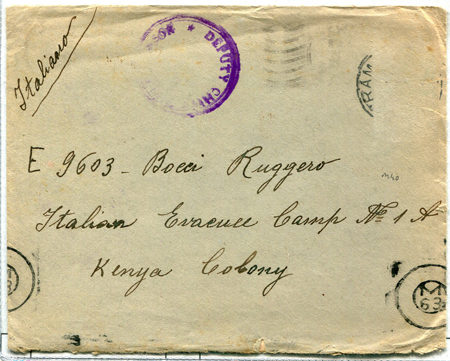 Italiano
DEPUTY CH
E 9603 - Bocci Ruggero
Italian Evacuee Camp № 1 A
Kenya Colony
M
63